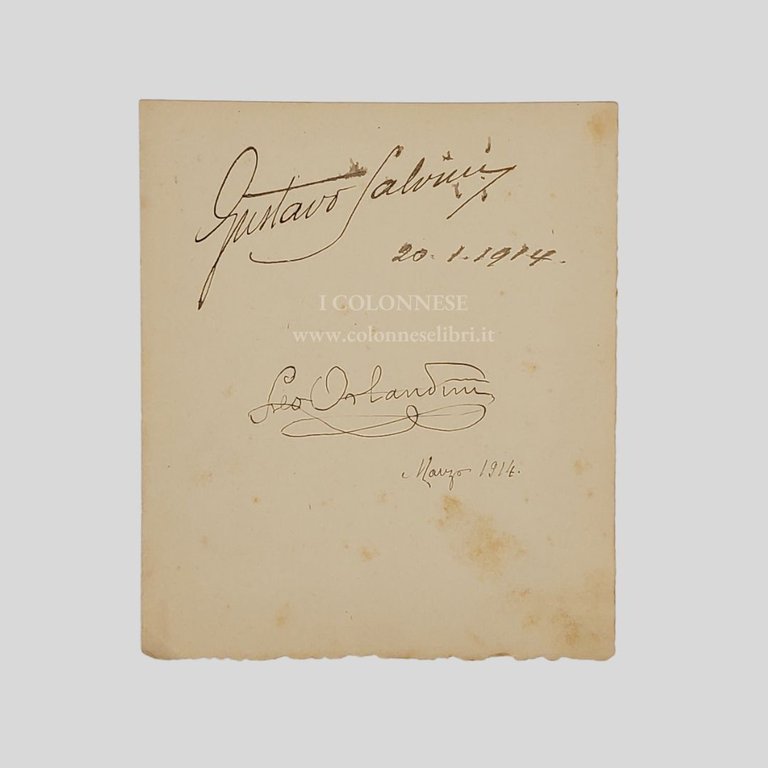 Gustavo Salvini
20. 1. 1914.
I COLONNESE
www.colonneselibri.it
Leo Orlandini
Marzo 1914.